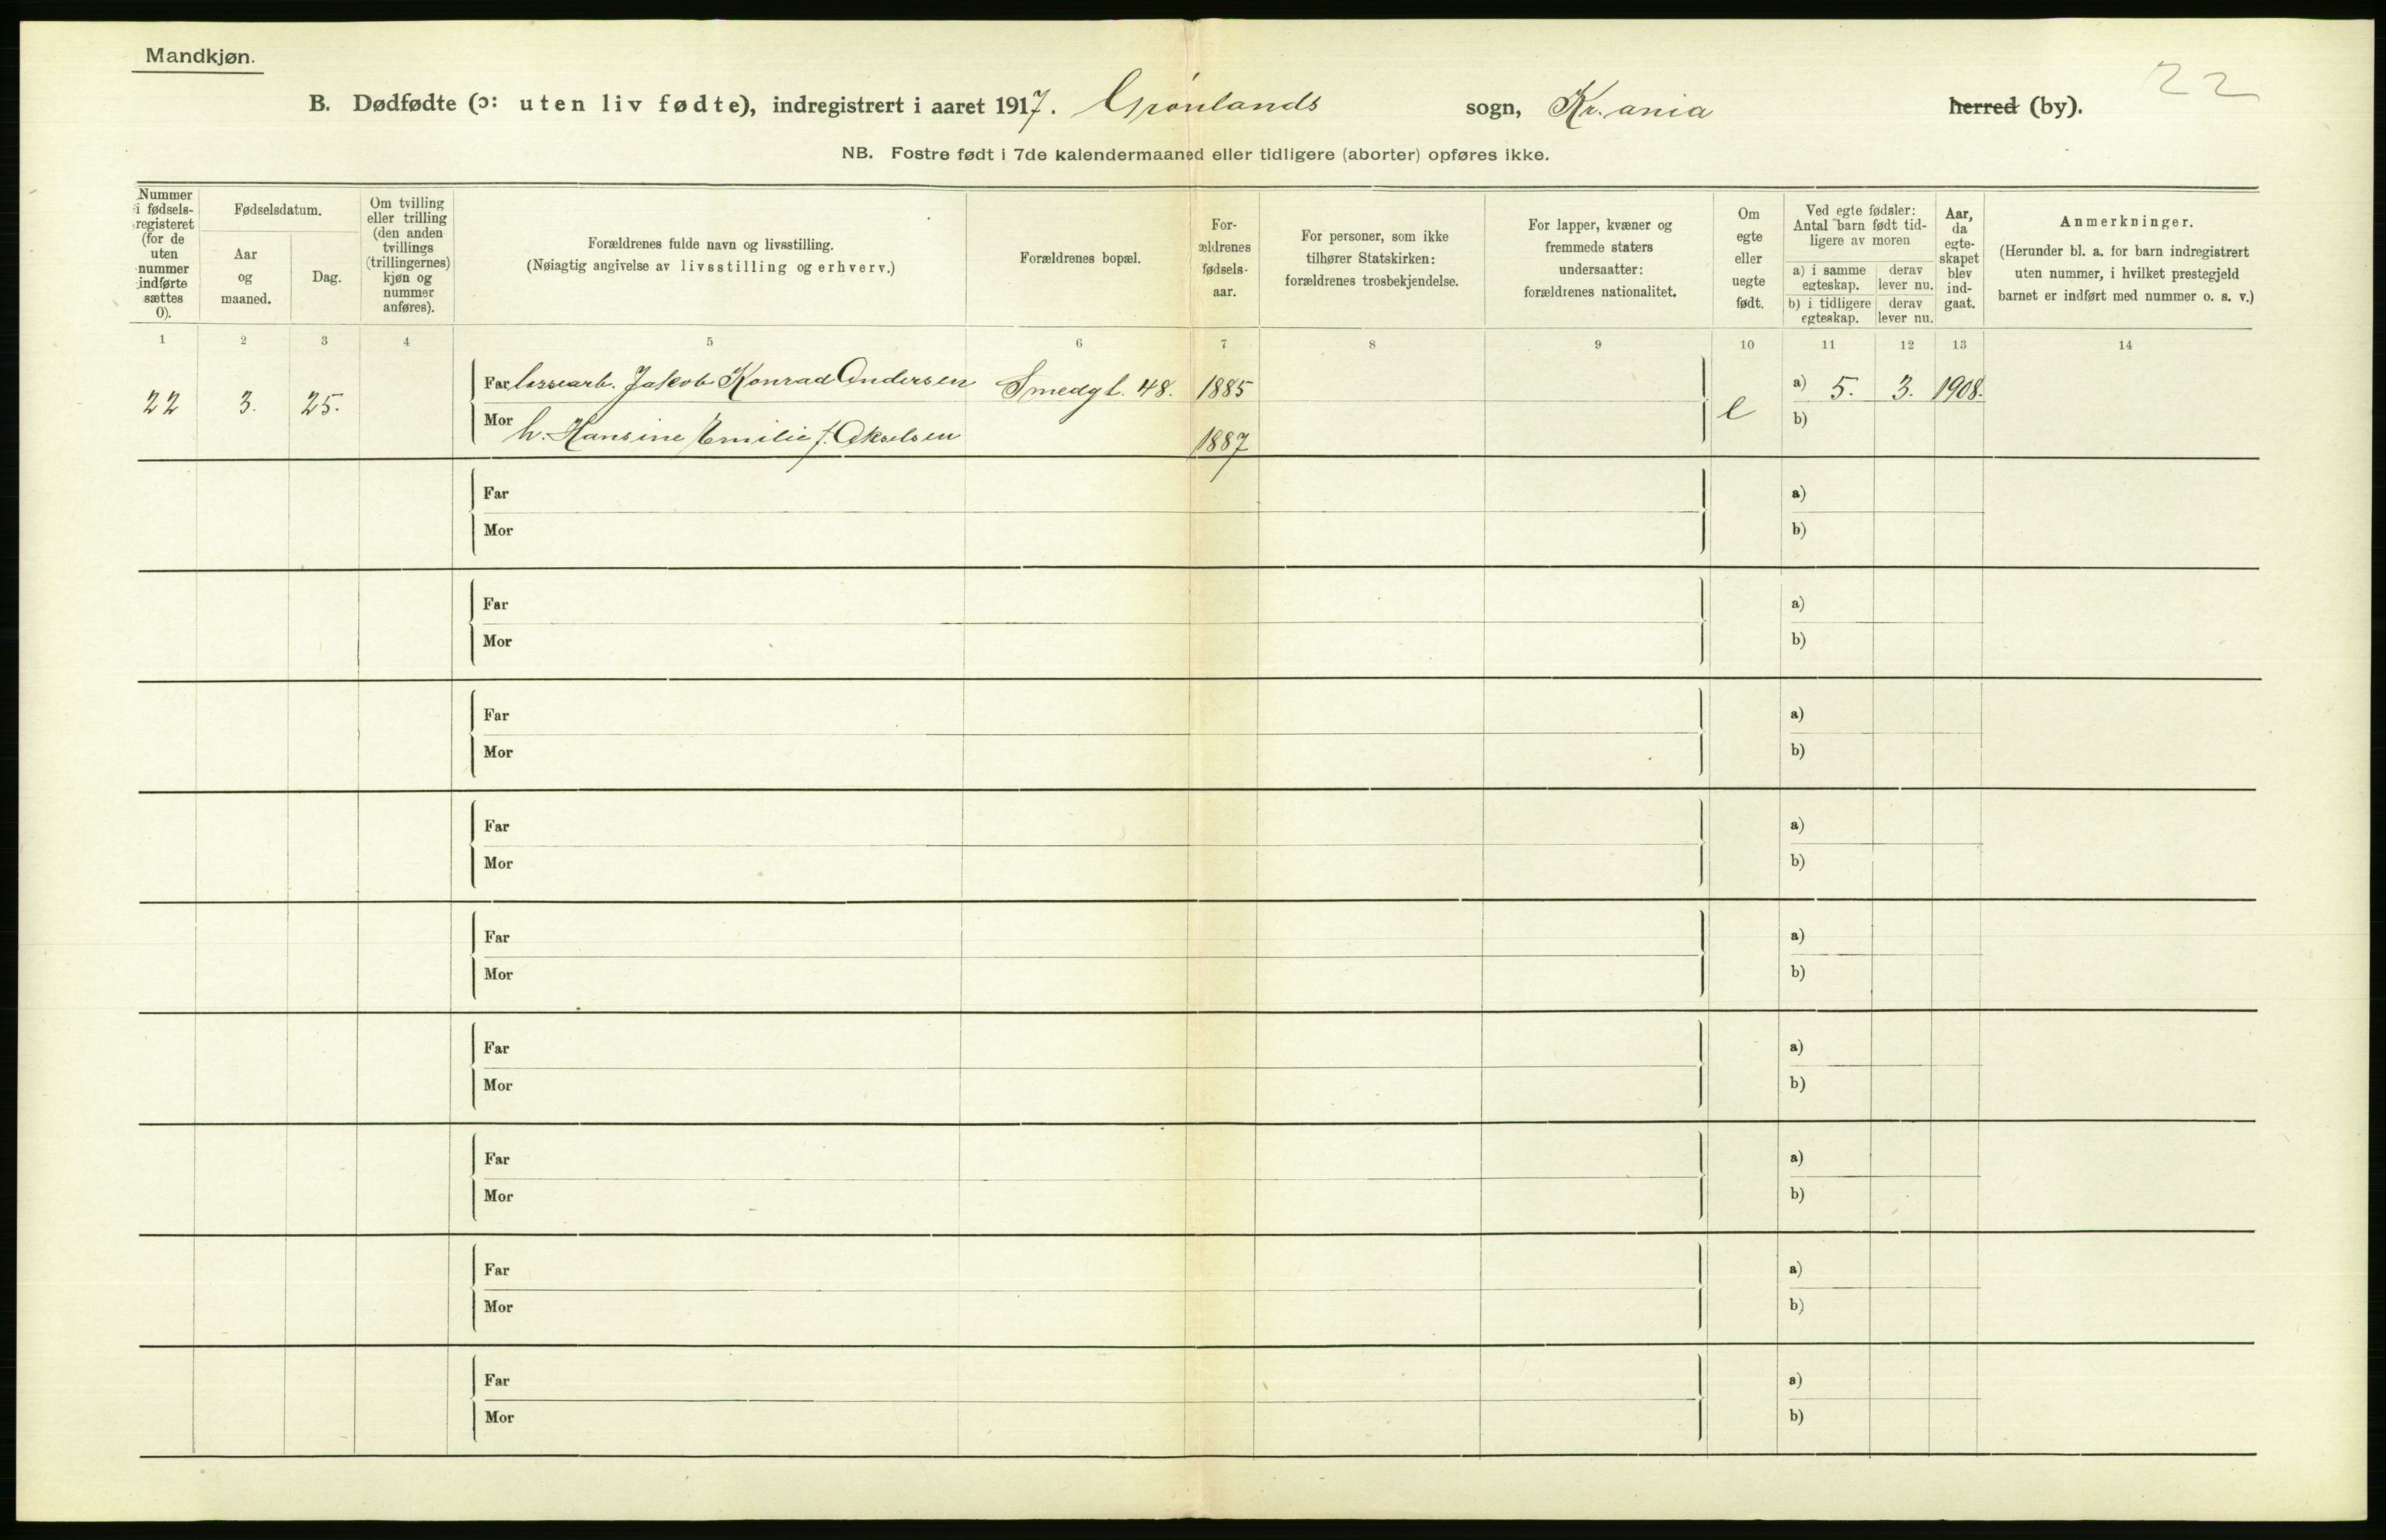 Mandkjøn.
22
B. Dødfødte (ɔ: uten liv fødte), indregistrert i aaret 1917. Grønlands sogn, Kr.ania herred (by).
NB. Fostre født i 7de kalendermaaned eller tidligere (aborter) opføres ikke.
Nummer i fødsels-registeret (for de uten nummer indførte sættes 0).
Fødselsdatum.
Aar og maaned.
Dag.
Om tvilling eller trilling (den anden tvillings (trillingernes) kjøn og nummer anføres).
Forældrenes fulde navn og livsstilling.
(Nøiagtig angivelse av livsstilling og erhverv.)
Forældrenes bopæl.
For-ældrenes fødsels-aar.
For personer, som ikke tilhører Statskirken: forældrenes trosbekjendelse.
For lapper, kvæner og fremmede staters undersaatter: forældrenes nationalitet.
Om egte eller uegte født.
Ved egte fødsler: Antal barn født tid-ligere av moren
a) i samme egteskap.
derav lever nu.
b) i tidligere egteskap.
derav lever nu.
Aar, da egte-skapet blev ind-gaat.
Anmerkninger.
(Herunder bl. a. for barn indregistrert uten nummer, i hvilket prestegjeld barnet er indført med nummer o. s. v.)
1 2 3 4 5 6 7 8 9 10 11 12 13 14
22 3. 25. Far Jakob Konrad Andersen Smedgt. 48. 1885 e a) 5. 3. 1908.
Mor h. Hansine Emilie f. Akselsen 1887 b)
Far a)
Mor b)
Far a)
Mor b)
Far a)
Mor b)
Far a)
Mor b)
Far a)
Mor b)
Far a)
Mor b)
Far a)
Mor b)
Far a)
Mor b)
Far a)
Mor b)